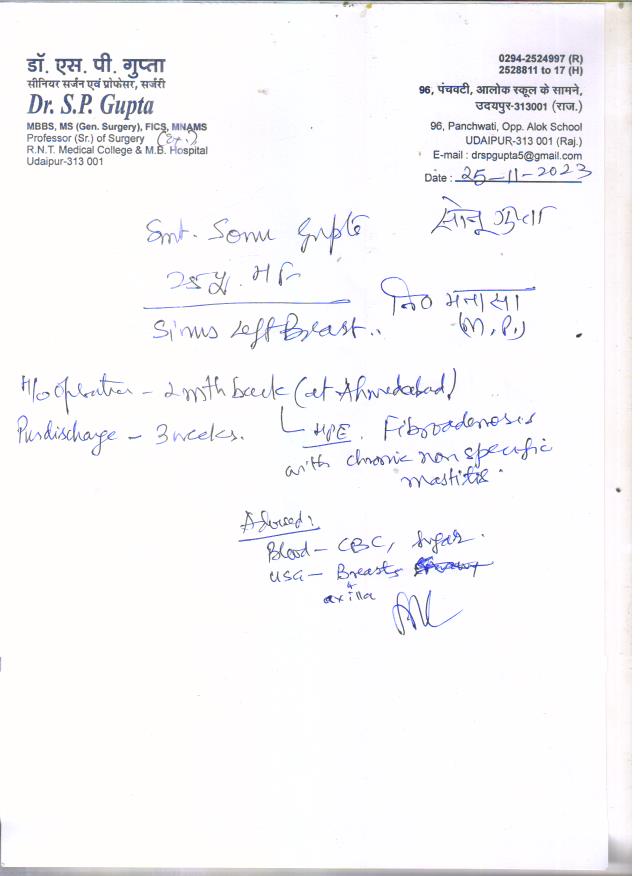 डॉ. एस. पी. गुप्ता
सीनियर सर्जन एवं प्रोफेसर, सर्जरी
Dr. S.P. Gupta
MBBS, MS (Gen. Surgery), FICS, MNAMS
Professor (Sr.) of Surgery (Ex.)
R.N.T. Medical College & M.B. Hospital
Udaipur-313 001
0294-2524997 (R)
2528811 to 17 (H)
96, पंचवटी, आलोक स्कूल के सामने,
उदयपुर-313001 (राज.)
96, Panchwati, Opp. Alok School
UDAIPUR-313 001 (Raj.)
E-mail : drspgupta5@gmail.com
Date : 25-11-2023
Smt. Sonu Gupta
सोनू गुप्ता
25
नि० मनासा
(M.P.)
Sinus Left Breast..
H/o Operation - 2 mth back (at Ahmedabad)
Pus discharge - 3 weeks.
HPE. Fibroadenosis
with chronic non specific
mastitis.
Advised:
Blood - CBC, Sugar.
USG - Breasts
+
axilla